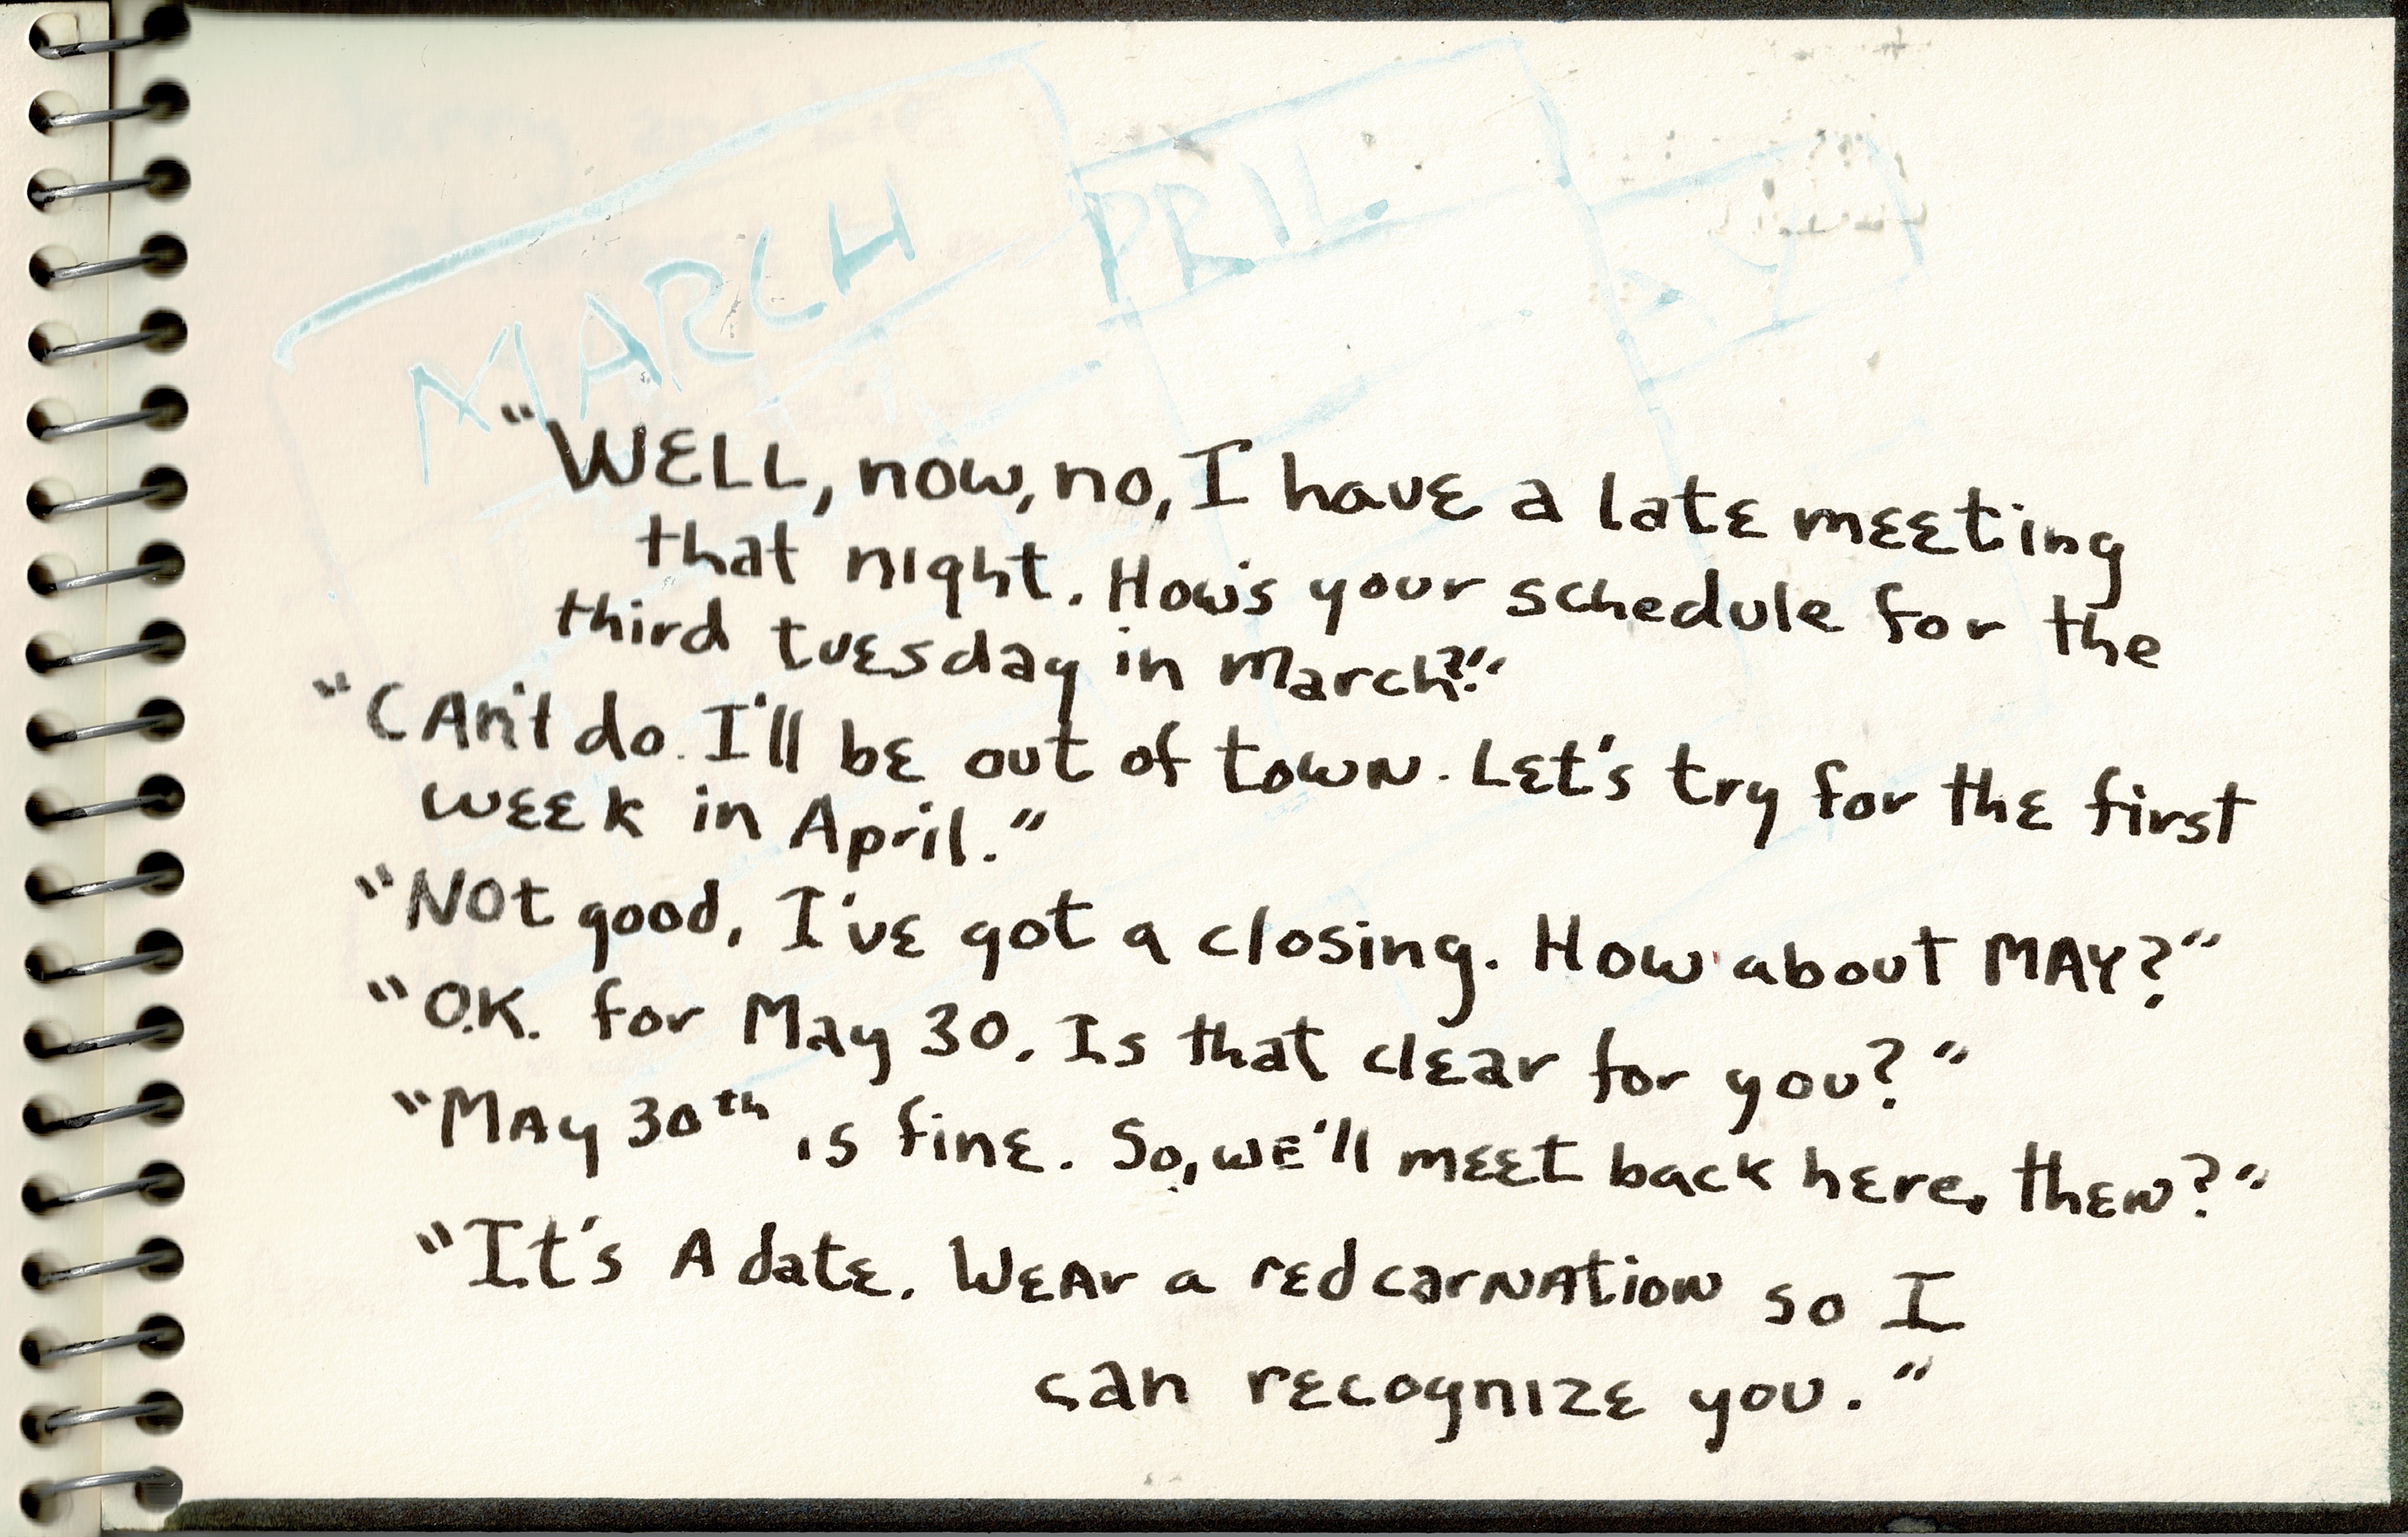 MARCH
PRIL
AY
"WELL, now, no, I have a late meeting
that night. How's your schedule for the
third tuesday in March?"
"CAn't do. I'll be out of town. Let's try for the first
week in April."
"NOt good, I've got a closing. How about MAY?"
"O.K. for May 30. Is that clear for you?"
"MAy 30th is fine. So, we'll meet back here, then?"
"It's A date. WEAr a red carNAtioN so I
can recognize you."